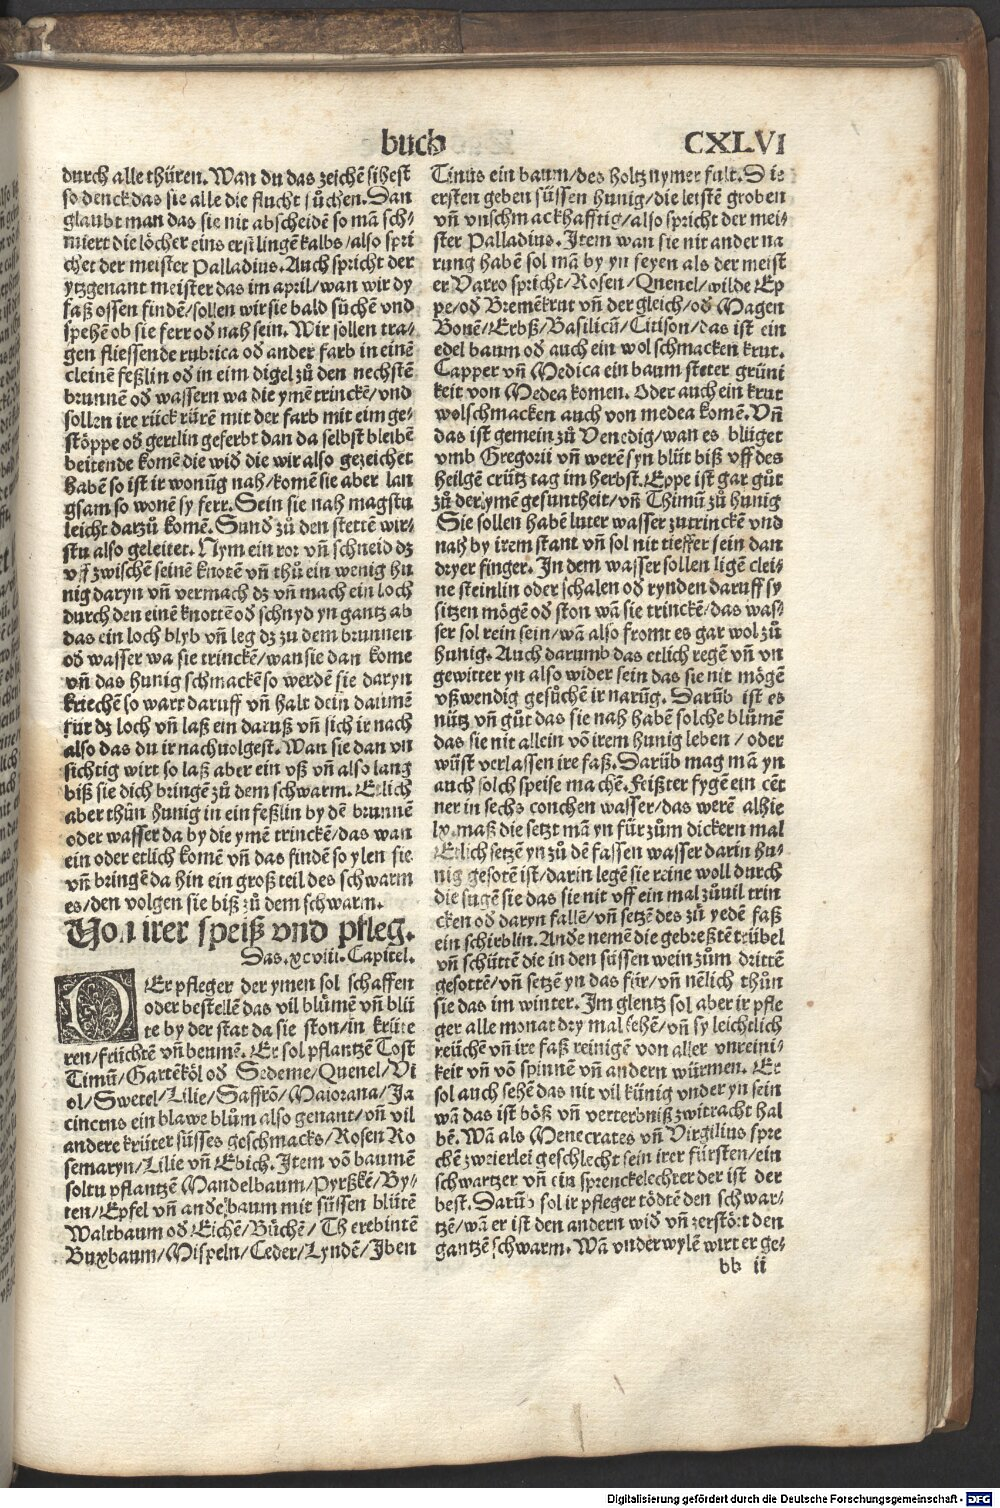 buch CXLVI
durch alle thüren. Wan du das zeichē sihest
so denck das sie alle die flucht sůchen. Dan
glaubt man das sie nit abscheidē so mā sch⸗
miert die löcher eins erst lingē kalbs/also spri
chet der meister Palladius. Auch spricht der
ytzgenant meister das im april/wan wir dy
faß offen findē/sollen wir sie bald sůchē vnd
spehē ob sie ferr od nah sein. Wir sollen tra⸗
gen fliessende rubrica od ander farb in einē
cleinē feßlin od in eim digel zů den nechstē
brunnē od wassern wa die ymē trinckē/vnd
sollen ire rück rürē mit der farb mit eim ge⸗
stöppe od gertlin geferbt dan da selbst bleibē
beitende komē die wid die wir also gezeichet
habē so ist ir wonūg nah/komē sie aber lan
gsam so wonē sy ferr. Sein sie nah magstu
leicht darzů komē. Sund zů den stettē wir⸗
stu also geleitet. Nym ein ror vñ schneid dz
vff zwischē seinē knotē vñ thů ein wenig hu
nig daryn vñ vermach dz vñ mach ein loch
durch den einē knottē od schnyd yn gantz ab
das ein loch blyb vñ leg dz zu dem brunnen
od wasser wa sie trinckē/wan sie dan kome
vñ das hunig schmackē so werdē sie daryn
kriechē so wart daruff vñ halt dein daumē
fur dz loch vñ laß ein daruß vñ sich ir nach
also das du ir nachuolgest. Wan sie dan vn
sichtig wirt so laß aber ein vß vñ also lang
biß sie dich bringē zů dem schwarm. Etlich
aber thůn hunig in ein feßlin by dē brunnē
oder wasser da by die ymē trinckē/das wan
ein oder etlich komē vñ das findē so ylen sie
vñ bringē da hin ein groß teil des schwarm
es/den volgen sie biß zů dem schwarm.
Von irer speiß vnd pfleg.
Das .xcviii. Capitel.
DEr pfleger der ymen sol schaffen
oder bestellē das vil blůmē vñ blü
te by der stat da sie ston/in krüte
ren/früchtē vñ beumē. Er sol pflantzē Tost
Timū/Gartēköl od Sedeme/Quenel/Vi
ol/Swetel/Lilie/Saffrō/Maiorana/Ja
cinctns ein blawe blům also genant/vñ vil
andere krüter süsses geschmacks/Rosen Ro
semaryn/Lilie vñ Ebich. Item vō baumē
soltu pflantzē Mandelbaum/Pyrßkē/By⸗
ren/Epfel vñ andē baum mit süssen blütē
Waltbaum od Eichē/Bůchē/Therebintē
Buxbaum/Mispeln/Ceder/Lyndē/Iben
Tinus ein baum/des holtz nymer fult. Die
ersten geben süssen hunig/die leistē groben
vñ vnschmackhafftig/also spricht der mei⸗
ster Palladius. Item wan sie nit ander na
rung habē sol mā by yn seyen als der meist
er Varro spricht/Rosen/Quenel/wilde Ep
pe/od Bremēkrut vñ der gleich/od Magen
Bonē/Erbß/Basilicū/Citison/das ist ein
edel baum od auch ein wol schmacken krut.
Capper vñ Medica ein baum steter grüni
keit von Medea komen. Oder auch ein krut
wolschmacken auch von medea komē. Vñ
das ist gemein zů Venedig/wan es blüget
vmb Gregorii vñ werē syn blüt biß vff des
heilgē crütz tag im herbst. Eppe ist gar gůt
zů der ymē gesuntheit/vñ Thimū zů hunig
Sie sollen habē luter wasser zu trinckē vnd
nah by irem stant vñ sol nit tieffer sein dan
dryer finger. In dem wasser sollen ligē clei⸗
ne steinlin oder schalen od rynden daruff sy
sitzen mögē od ston wā sie trinckē/das was⸗
ser sol rein sein/wā also fromt es gar wol zů
hunig. Auch darumb das etlich regē vñ vn
gewitter yn also wider sein das sie nit mögē
vßwendig gesůchē ir narūg. Darūb ist es
nütz vñ gůt das sie nah habē solche blůmē
das sie nit allein vō irem hunig leben / oder
wüst verlassen ire faß. Darūb mag mā yn
auch solch speise machē. Feißter fygē ein cēt
ner in sechs conchen wasser/das werē alhie
lx. maß die setzt mā yn für zům dickern mal
Etlich setzē yn zů dē fassen wasser darin hu⸗
nig gesotē ist/darin legē sie reine woll durch
die sugē sie das sie nit vff ein mal zůuil trin
cken od daryn fallē/vñ setzē des zů yedē faß
ein schirblin. Andē nemē die gebreßtē trübel
vñ schüttē die in den süssen wein zům drittē
gesottē/vñ setzē yn das für/vñ nēlich thůn
sie das im winter. Im glentz sol aber ir pfle
ger alle monat dry mal sehē/vñ sy leichtlich
reüchē vñ ire faß reinigē von aller vnreini⸗
keit vñ vō spinnē vñ andern würmen. Er
sol auch sehē das nit vil künig vnder yn sein
wā das ist böß vñ verterbniß zwitracht hal
bē. Wā als Menecrates vñ Virgilius spre
chē zweierlei geschlecht sein irer fürsten/ein
schwartzer vñ ein sprenckelechter der ist der
best. Darūb sol ir pfleger tödtē den schwar⸗
tzē/wā er ist den andern wid vñ zerstört den
gantzē schwarm. Wā vnderwylē wirt er ge⸗
bb ii
Digitalisierung gefördert durch die Deutsche Forschungsgemeinschaft - DFG